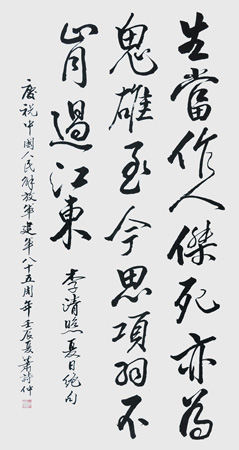 生當作人傑死亦為
鬼雄至今思項羽不
肯過江東
李清照夏日絕句
慶祝中國人民解放軍建軍八十五周年壬辰夏蕭詩仲